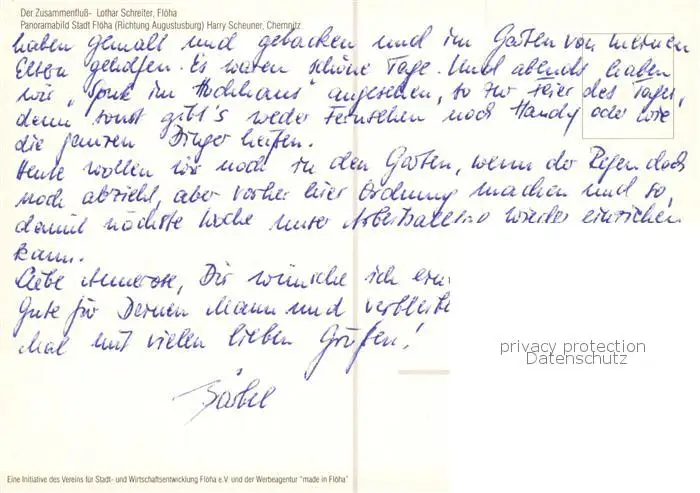 Der Zusammenfluß- Lothar Schreiter, Flöha
Panoramabild Stadt Flöha (Richtung Augustusburg) Harry Scheuner, Chemnitz
haben gemalt und gebacken und im Garten von meinen
Eltern geholfen. Es waren schöne Tage. Und abends haben
wir "Spuk im Hochhaus" angesehen, so zur Feier des Tages,
denn sonst gibt's weder Fernsehen noch Handy oder wie
die ganzen Dinger heißen.
Heute wollen wir noch in den Garten, wenn der Regen doch
noch abzieht, aber vorher hier Ordnung machen und so,
damit nächste Woche unser Arbeitsalltag wieder einziehen
kann.
Liebe Annerose, Dir wünsche ich
Gute für Deinen Mann und verbleibe
Mal mit vielen lieben Grüßen!
Bärbel
privacy protection
Datenschutz
Eine Initiative des Vereins für Stadt- und Wirtschaftsentwicklung Flöha e.V. und der Werbeagentur "made in Flöha"